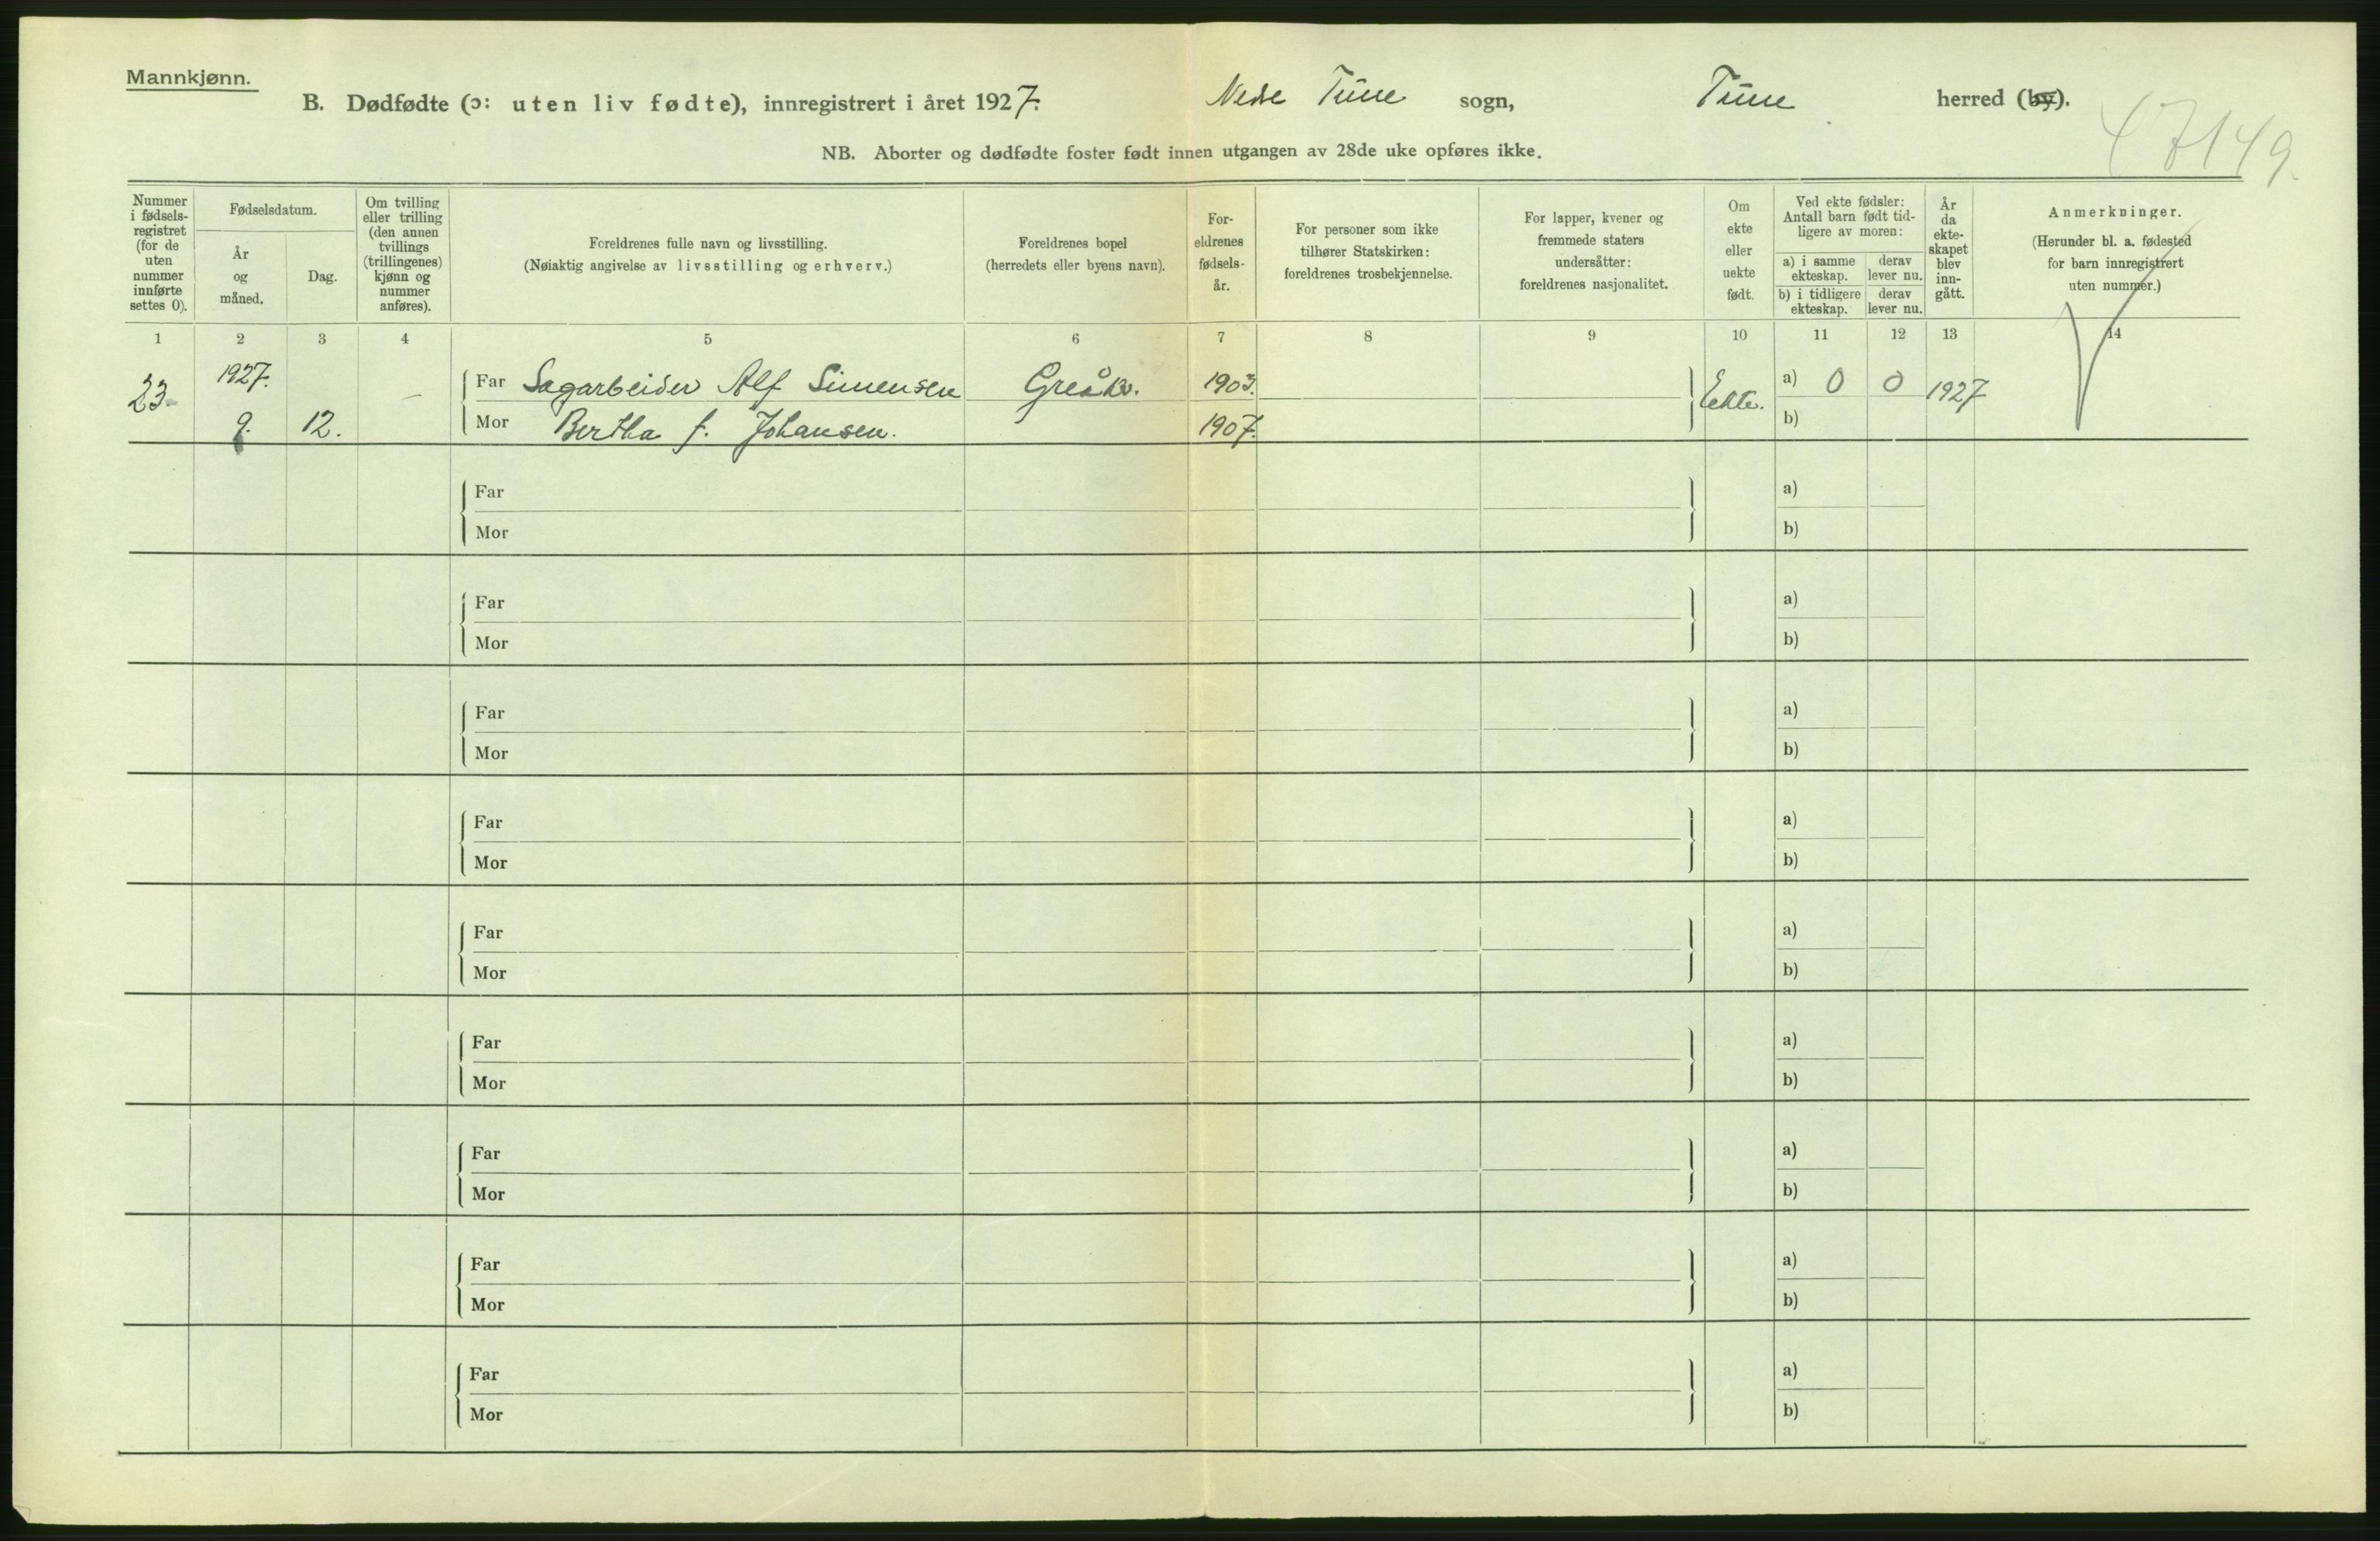 Mannkjønn.
B. Dødfødte (ɔ: uten liv fødte), innregistrert i året 1927. Nedre Tune sogn, Tune herred (by).
47149.
NB. Aborter og dødfødte foster født innen utgangen av 28de uke opføres ikke.
Nummer i fødsels-registret (for de uten nummer innførte settes 0).
Fødselsdatum.
År og måned.
Dag.
Om tvilling eller trilling (den annen tvillings (trillingenes) kjønn og nummer anføres).
Foreldrenes fulle navn og livsstilling.
(Nøiaktig angivelse av livsstilling og erhverv.)
Foreldrenes bopel
(herredets eller byens navn).
For-eldrenes fødsels-år.
For personer som ikke tilhører Statskirken: foreldrenes trosbekjennelse.
For lapper, kvener og fremmede staters undersåtter: foreldrenes nasjonalitet.
Om ekte eller uekte født.
Ved ekte fødsler: Antall barn født tid-ligere av moren:
a) i samme ekteskap.
derav lever nu.
b) i tidligere ekteskap.
derav lever nu.
År da ekte-skapet blev inn-gått.
Anmerkninger.
(Herunder bl. a. fødested for barn innregistrert uten nummer.)
1 2 3 4 5 6 7 8 9 10 11 12 13 14
23 1927. 9. 12. —
Far Sagarbeider Alf Simensen Greåker. 1903. Ekte. a) 0 0 1927
Mor Bertha f. Johansen. 1907. b)
Far a)
Mor b)
Far a)
Mor b)
Far a)
Mor b)
Far a)
Mor b)
Far a)
Mor b)
Far a)
Mor b)
Far a)
Mor b)
Far a)
Mor b)
Far a)
Mor b)